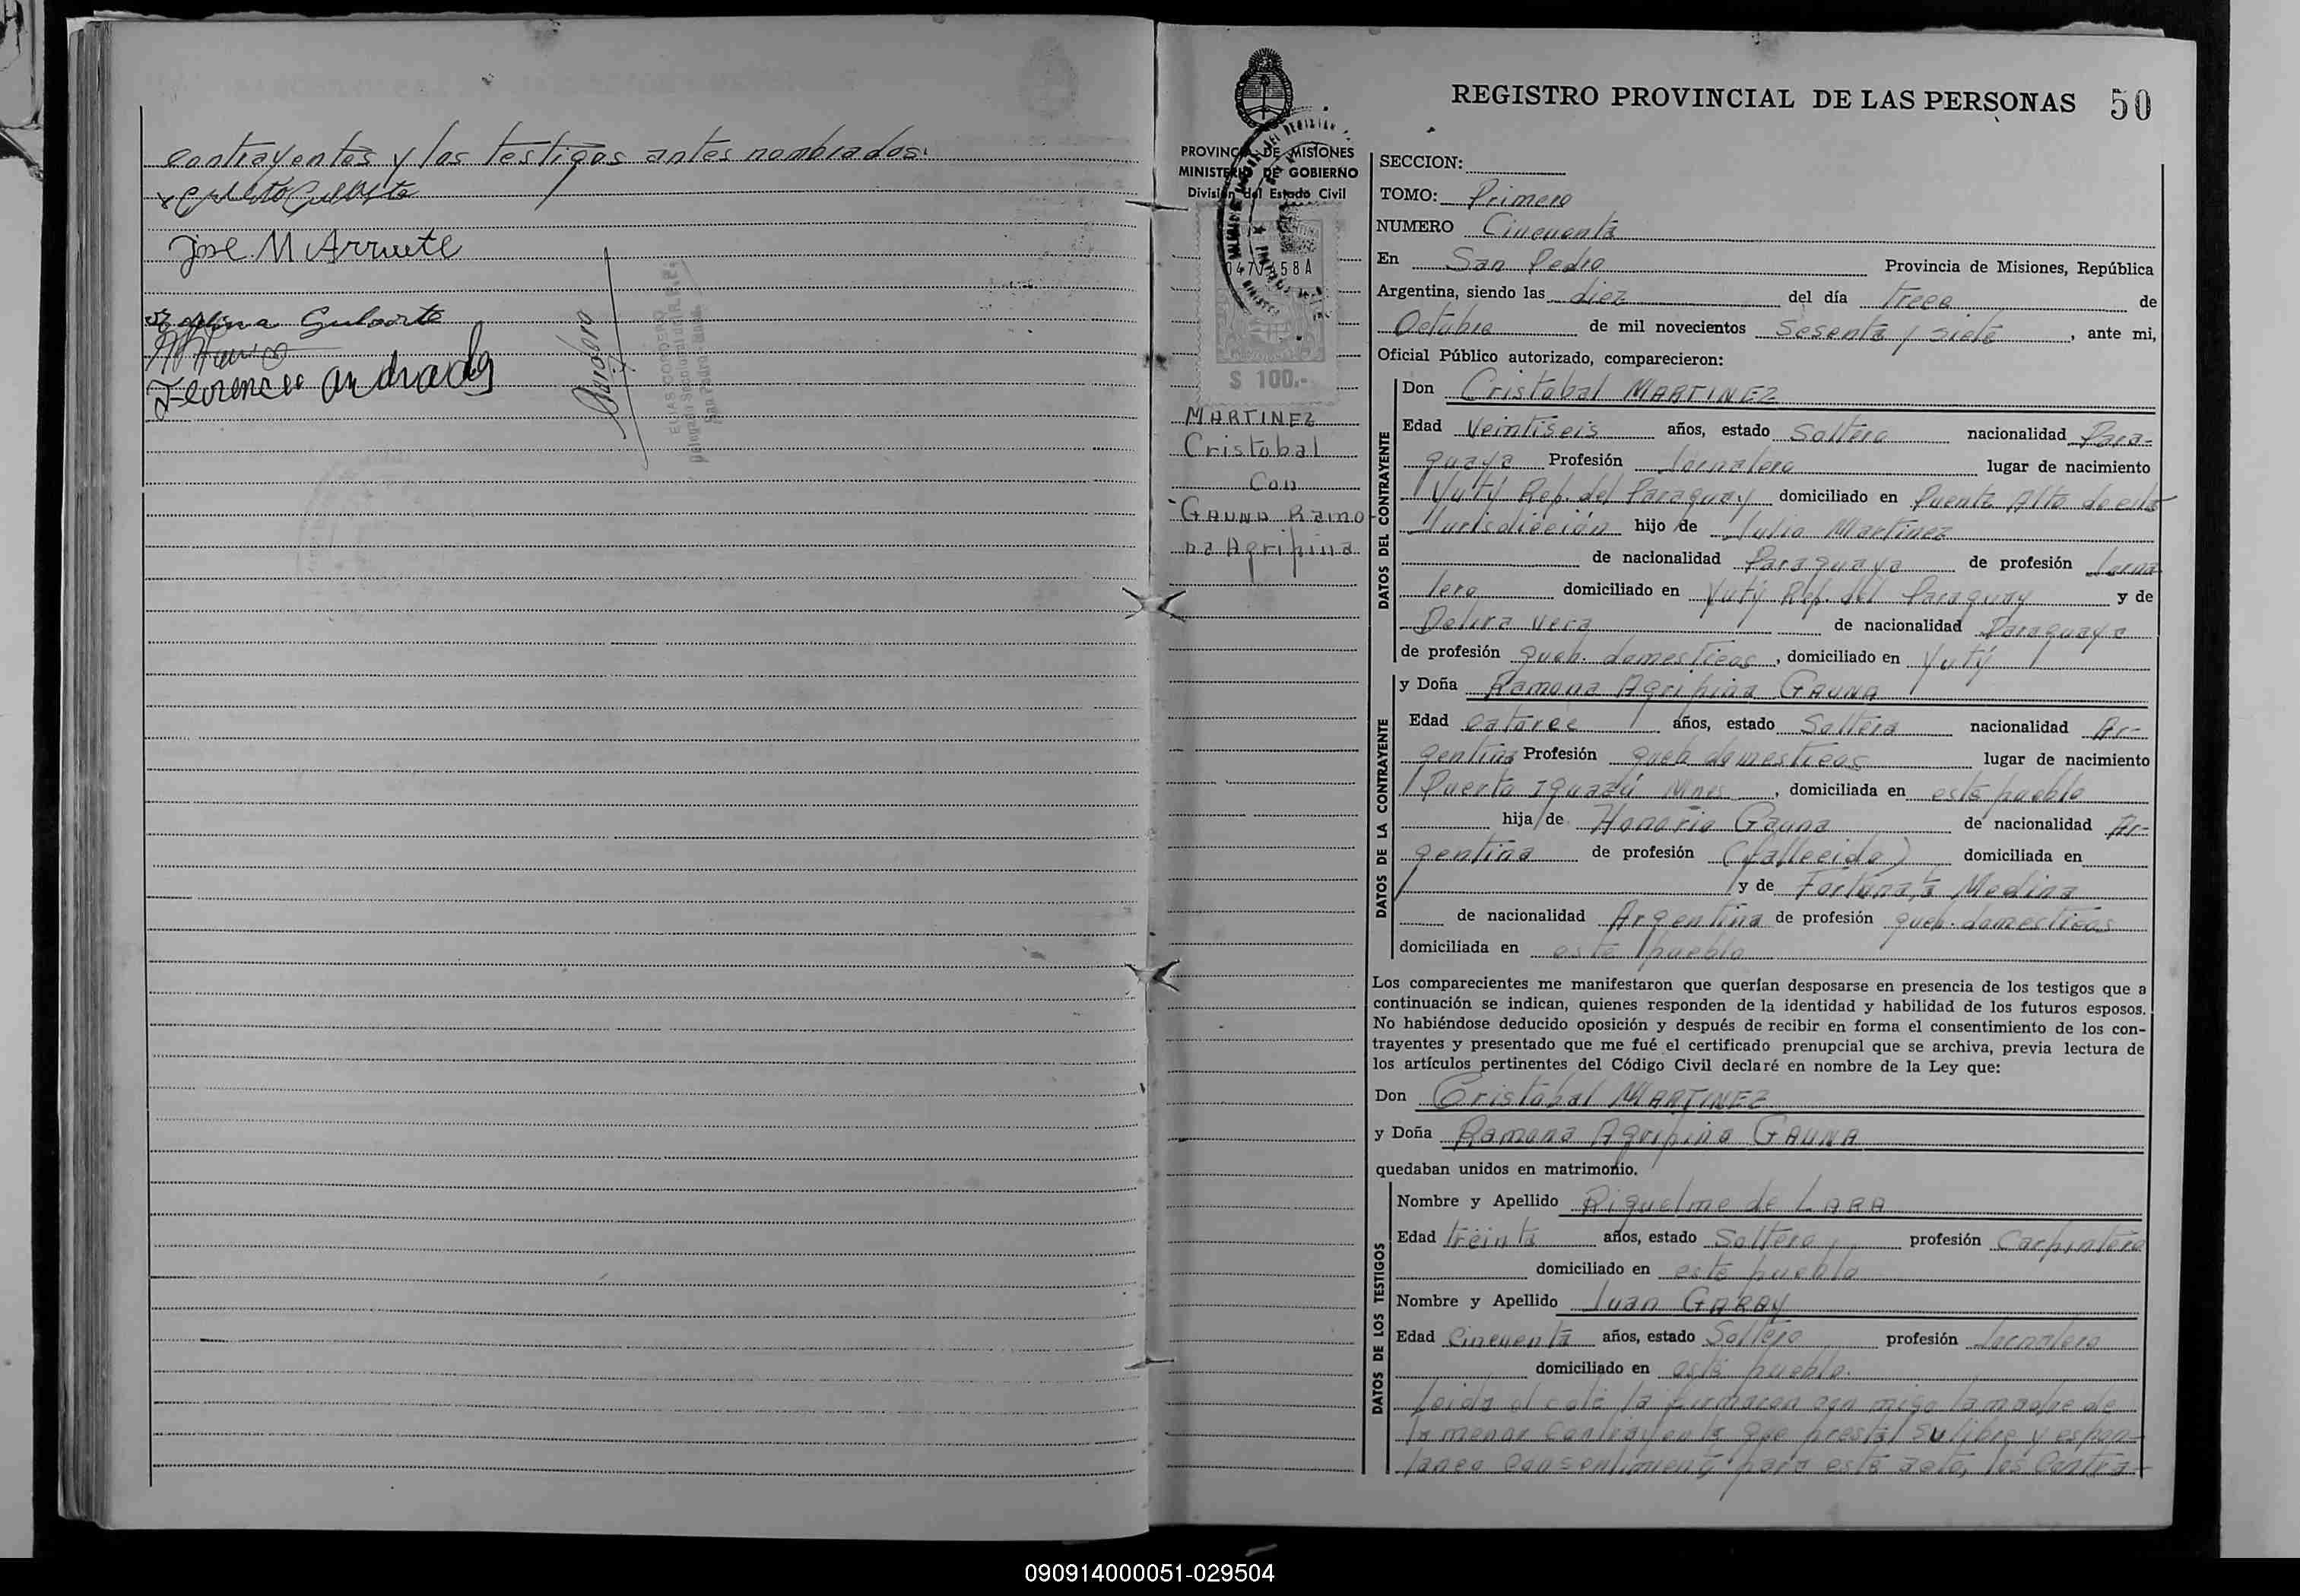 contrayentes y los testigos antes nombrados.
Jose M Arruete
ELIAS CORDERO
REGISTRO PROVINCIAL DE LAS PERSONAS 50
PROVINCIA DE MISIONES
MINISTERIO DE GOBIERNO
División del Estado Civil
$ 100.-
MARTINEZ
Cristobal
Con
GAUNA Ramo-
na Agripina
SECCION:
TOMO: Primero
NUMERO Cincuenta
En San Pedro Provincia de Misiones, República
Argentina, siendo las diez del día trece de
Octubre de mil novecientos sesenta y siete, ante mi,
Oficial Público autorizado, comparecieron:
DATOS DEL CONTRAYENTE
Don Cristobal MARTINEZ
Edad veintiseis años, estado Soltero nacionalidad Para-
guaya Profesión Jornalero lugar de nacimiento
Yutý Rep. del Paraguay domiciliado en Puente Alto de esta
Jurisdicción hijo de Julio Martinez
de nacionalidad Paraguaya de profesión Jorna-
lero domiciliado en Yutý Rep. del Paraguay y de
Delira Vera de nacionalidad Paraguaya
de profesión queh. domesticos, domiciliado en Yutý
DATOS DE LA CONTRAYENTE
y Doña Ramona Agripina GAUNA
Edad catorce años, estado Soltera nacionalidad Ar-
gentina Profesión queh domesticos lugar de nacimiento
Puerto Iguazú Mnes, domiciliada en este pueblo
hija de Honorio Gauna de nacionalidad Ar-
gentina de profesión (fallecido) domiciliada en
y de Fortunata Medina
de nacionalidad Argentina de profesión queh. domesticos
domiciliada en este pueblo
Los comparecientes me manifestaron que querían desposarse en presencia de los testigos que a
continuación se indican, quienes responden de la identidad y habilidad de los futuros esposos.
No habiéndose deducido oposición y después de recibir en forma el consentimiento de los con-
trayentes y presentado que me fué el certificado prenupcial que se archiva, previa lectura de
los artículos pertinentes del Código Civil declaré en nombre de la Ley que:
Don Cristobal MARTINEZ
y Doña Ramona Agripina GAUNA
quedaban unidos en matrimonio.
DATOS DE LOS TESTIGOS
Nombre y Apellido Riquelme de LARA
Edad treinta años, estado Soltero, profesión Carpintero
domiciliado en este pueblo
Nombre y Apellido Juan GARAY
Edad Cincuenta años, estado Soltero profesión Jornalero
domiciliado en este pueblo.
Leida el acta la firmaron con migo la madre de
la menor Contrayente que presta su libre y espon-
taneo consentimiento para este acto, los Contra-
090914000051-029504